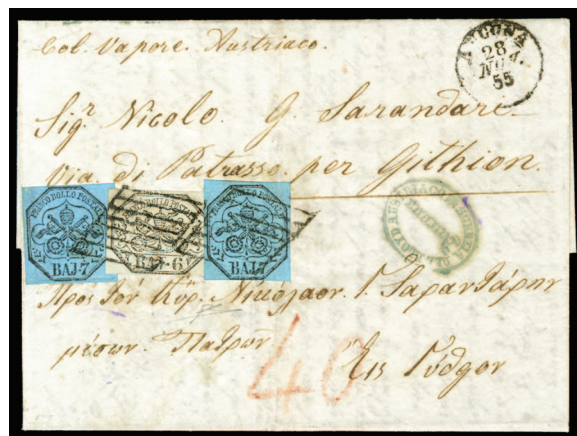 Col. Vapore. Austriaco.
ANCONA
28
NOV.
55
Sigr. Nicolo. G. Sarandari
via. di Patrasso. per Githion.
FRANCO BOLLO POSTALE
BAJ-7
BOLLO POSTALE
BAJ-6
FRANCO BOLLO POSTALE
BAJ-7
Πρός τόν Κύρ. Νικόλαον. Γ. Σαραντάρην
μέσων. Πατρῶν
Εις Γύθιον
40